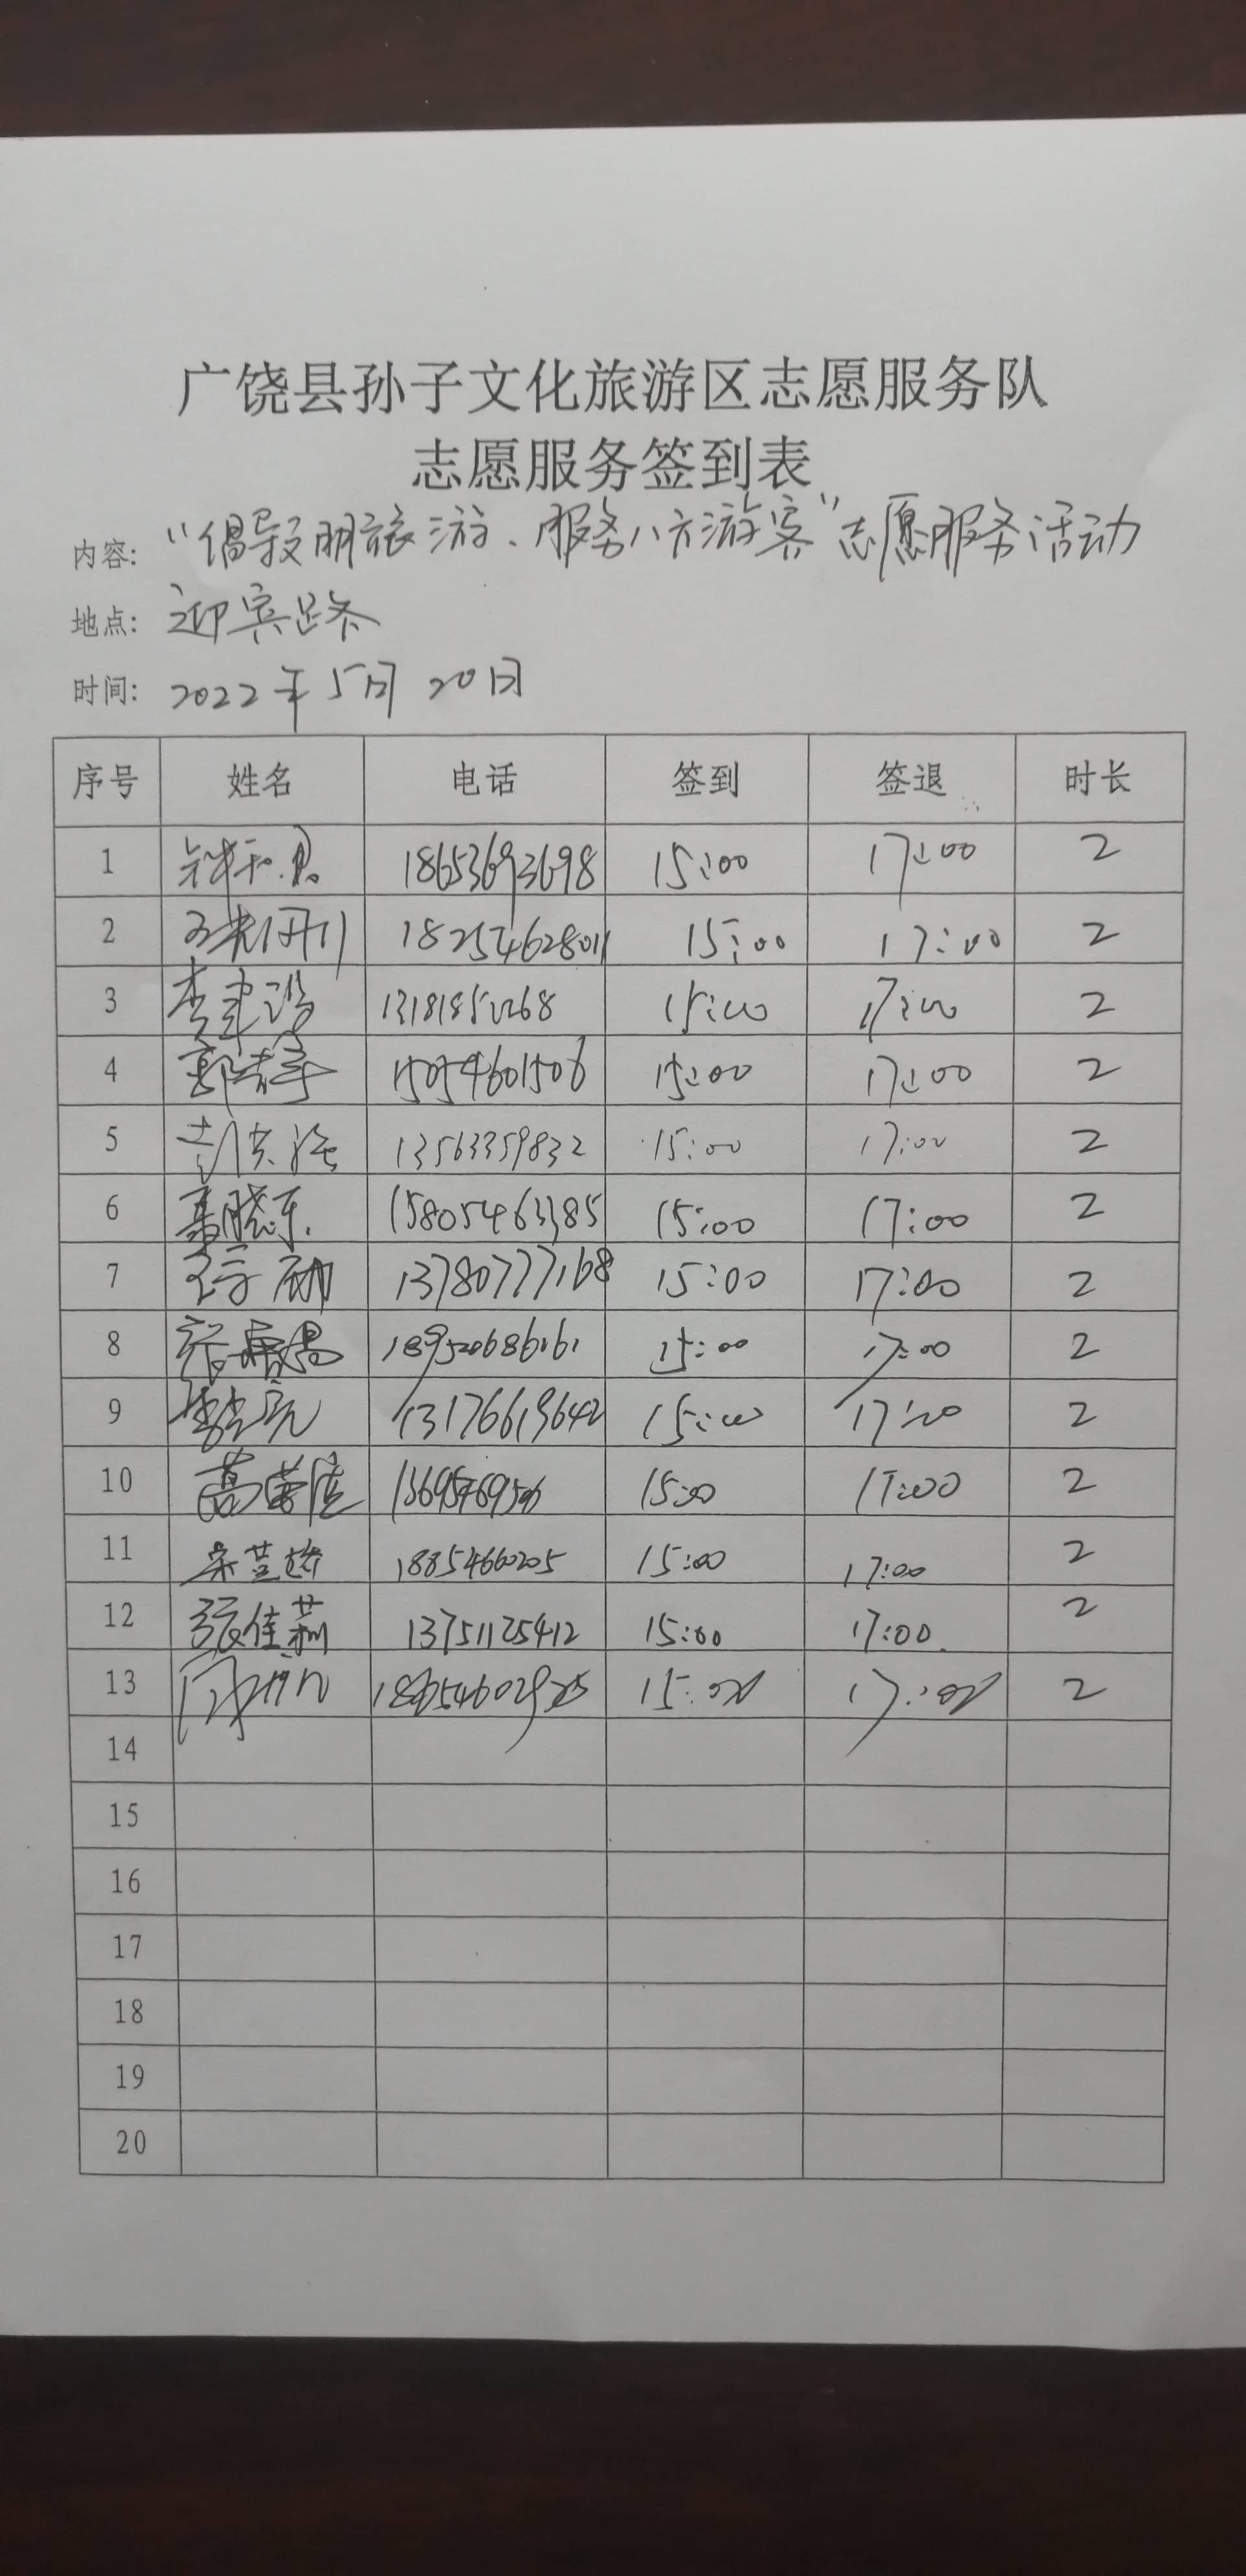 广饶县孙子文化旅游区志愿服务队
志愿服务签到表
内容: “倡导文明旅游、服务八方游客”志愿服务活动
地点: 迎宾路
时间: 2022年5月20日
序号 姓名 电话 签到 签退 时长
1 18653693698 15:00 17:00 2
2 18254628011 15:00 17:00 2
3 李建设 15:00 17:00 2
4 15054601506 15:00 17:00 2
5 13563359832 15:00 17:00 2
6 聂晓东 15805463385 15:00 17:00 2
7 13780777168 15:00 17:00 2
8 15:00 17:00 2
9 13176619642 15:00 17:00 2
10 15:00 17:00 2
11 18854660205 15:00 17:00 2
12 张佳莉 13751125412 15:00 17:00 2
13 15:00 17:00 2
14
15
16
17
18
19
20